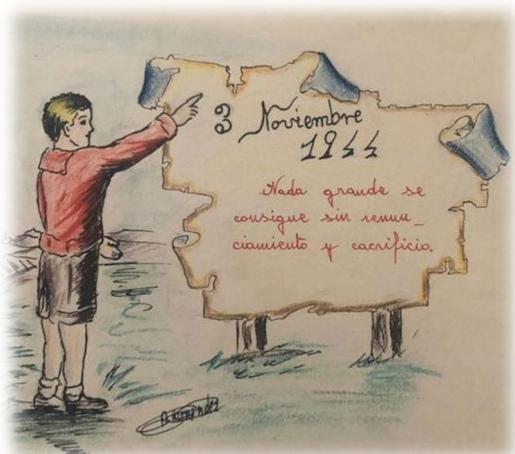 3 Noviembre
1944
Nada grande se
consigue sin renun_
ciamiento y sacrificio.